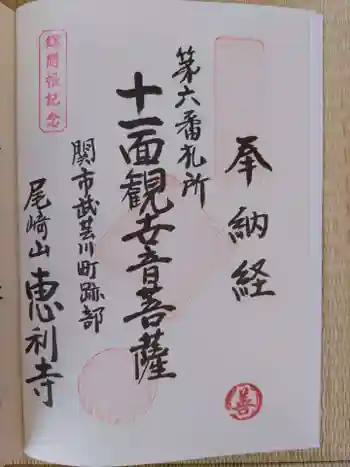 奉納経
善
第六番札所
十一面観世音菩薩
関市武芸川町跡部
尾崎山恵利寺
総開帳記念